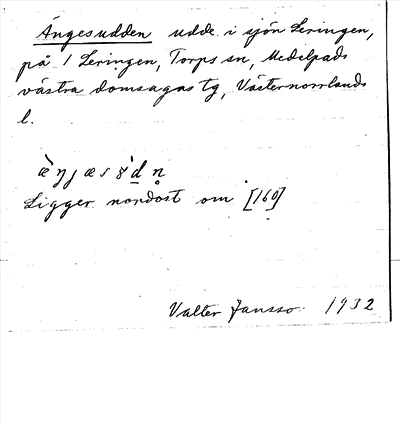 Ängesudden udde i sjön Leringen,
på 1 Leringen, Torps sn, Medelpads
västra domsagas tg, Västernorrlands
l.
Ligger nordost om [160]
Valter Jansso 1932